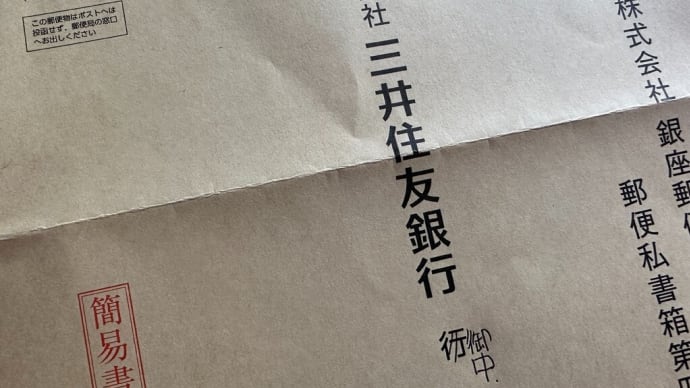 株式会社 銀座郵便
郵便私書箱第
社 三井住友銀行
行
御中.
この郵便物はポストへは
投函せず、郵便局の窓口
へお出しください
簡易書